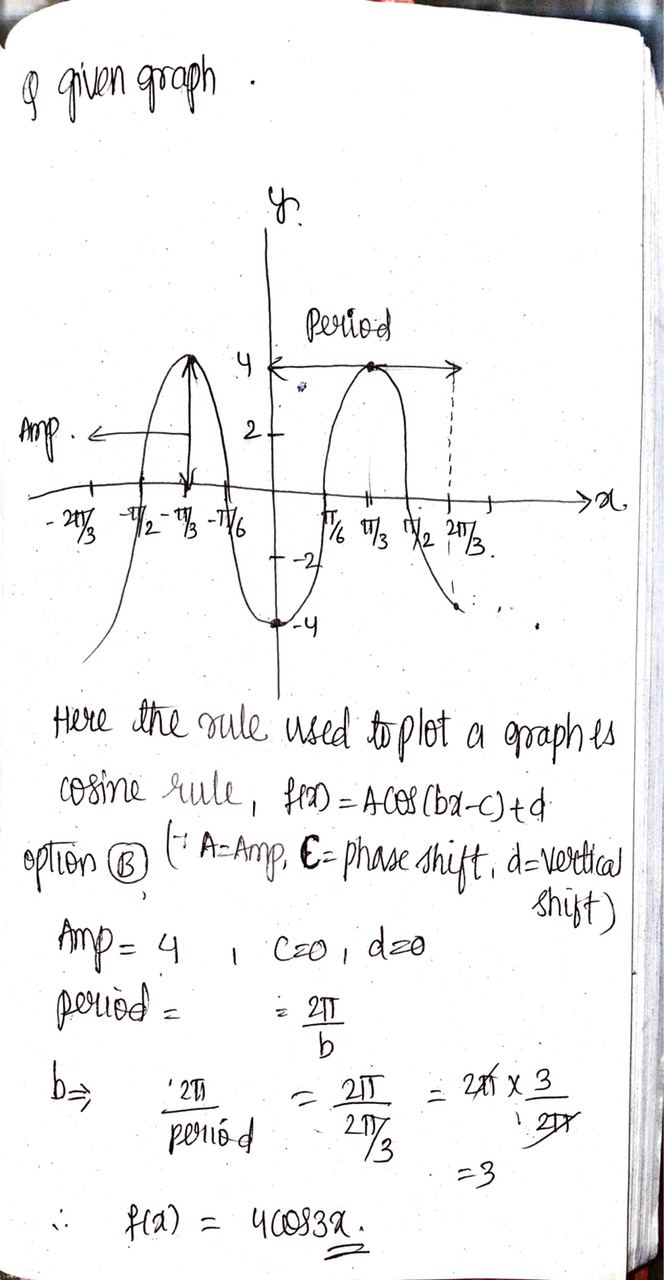 Q given graph .
y
Period
4
Amp .
2
x
- 2π/3 -π/2 -π/3 -π/6 π/6 π/3 π/2 2π/3 .
-2
-4
Here the rule used to plot a graph is
cosine rule, f(x) = A cos (bx-c) + d
option Ⓑ (∵ A = Amp, C = phase shift, d = vertical
shift)
Amp = 4 , c=0 , d=0
period = = 2π/b
b ⇒ 2π/period = 2π/2π/3 = 2π x 3/2π
= 3
∴ f(x) = 4cos3x.